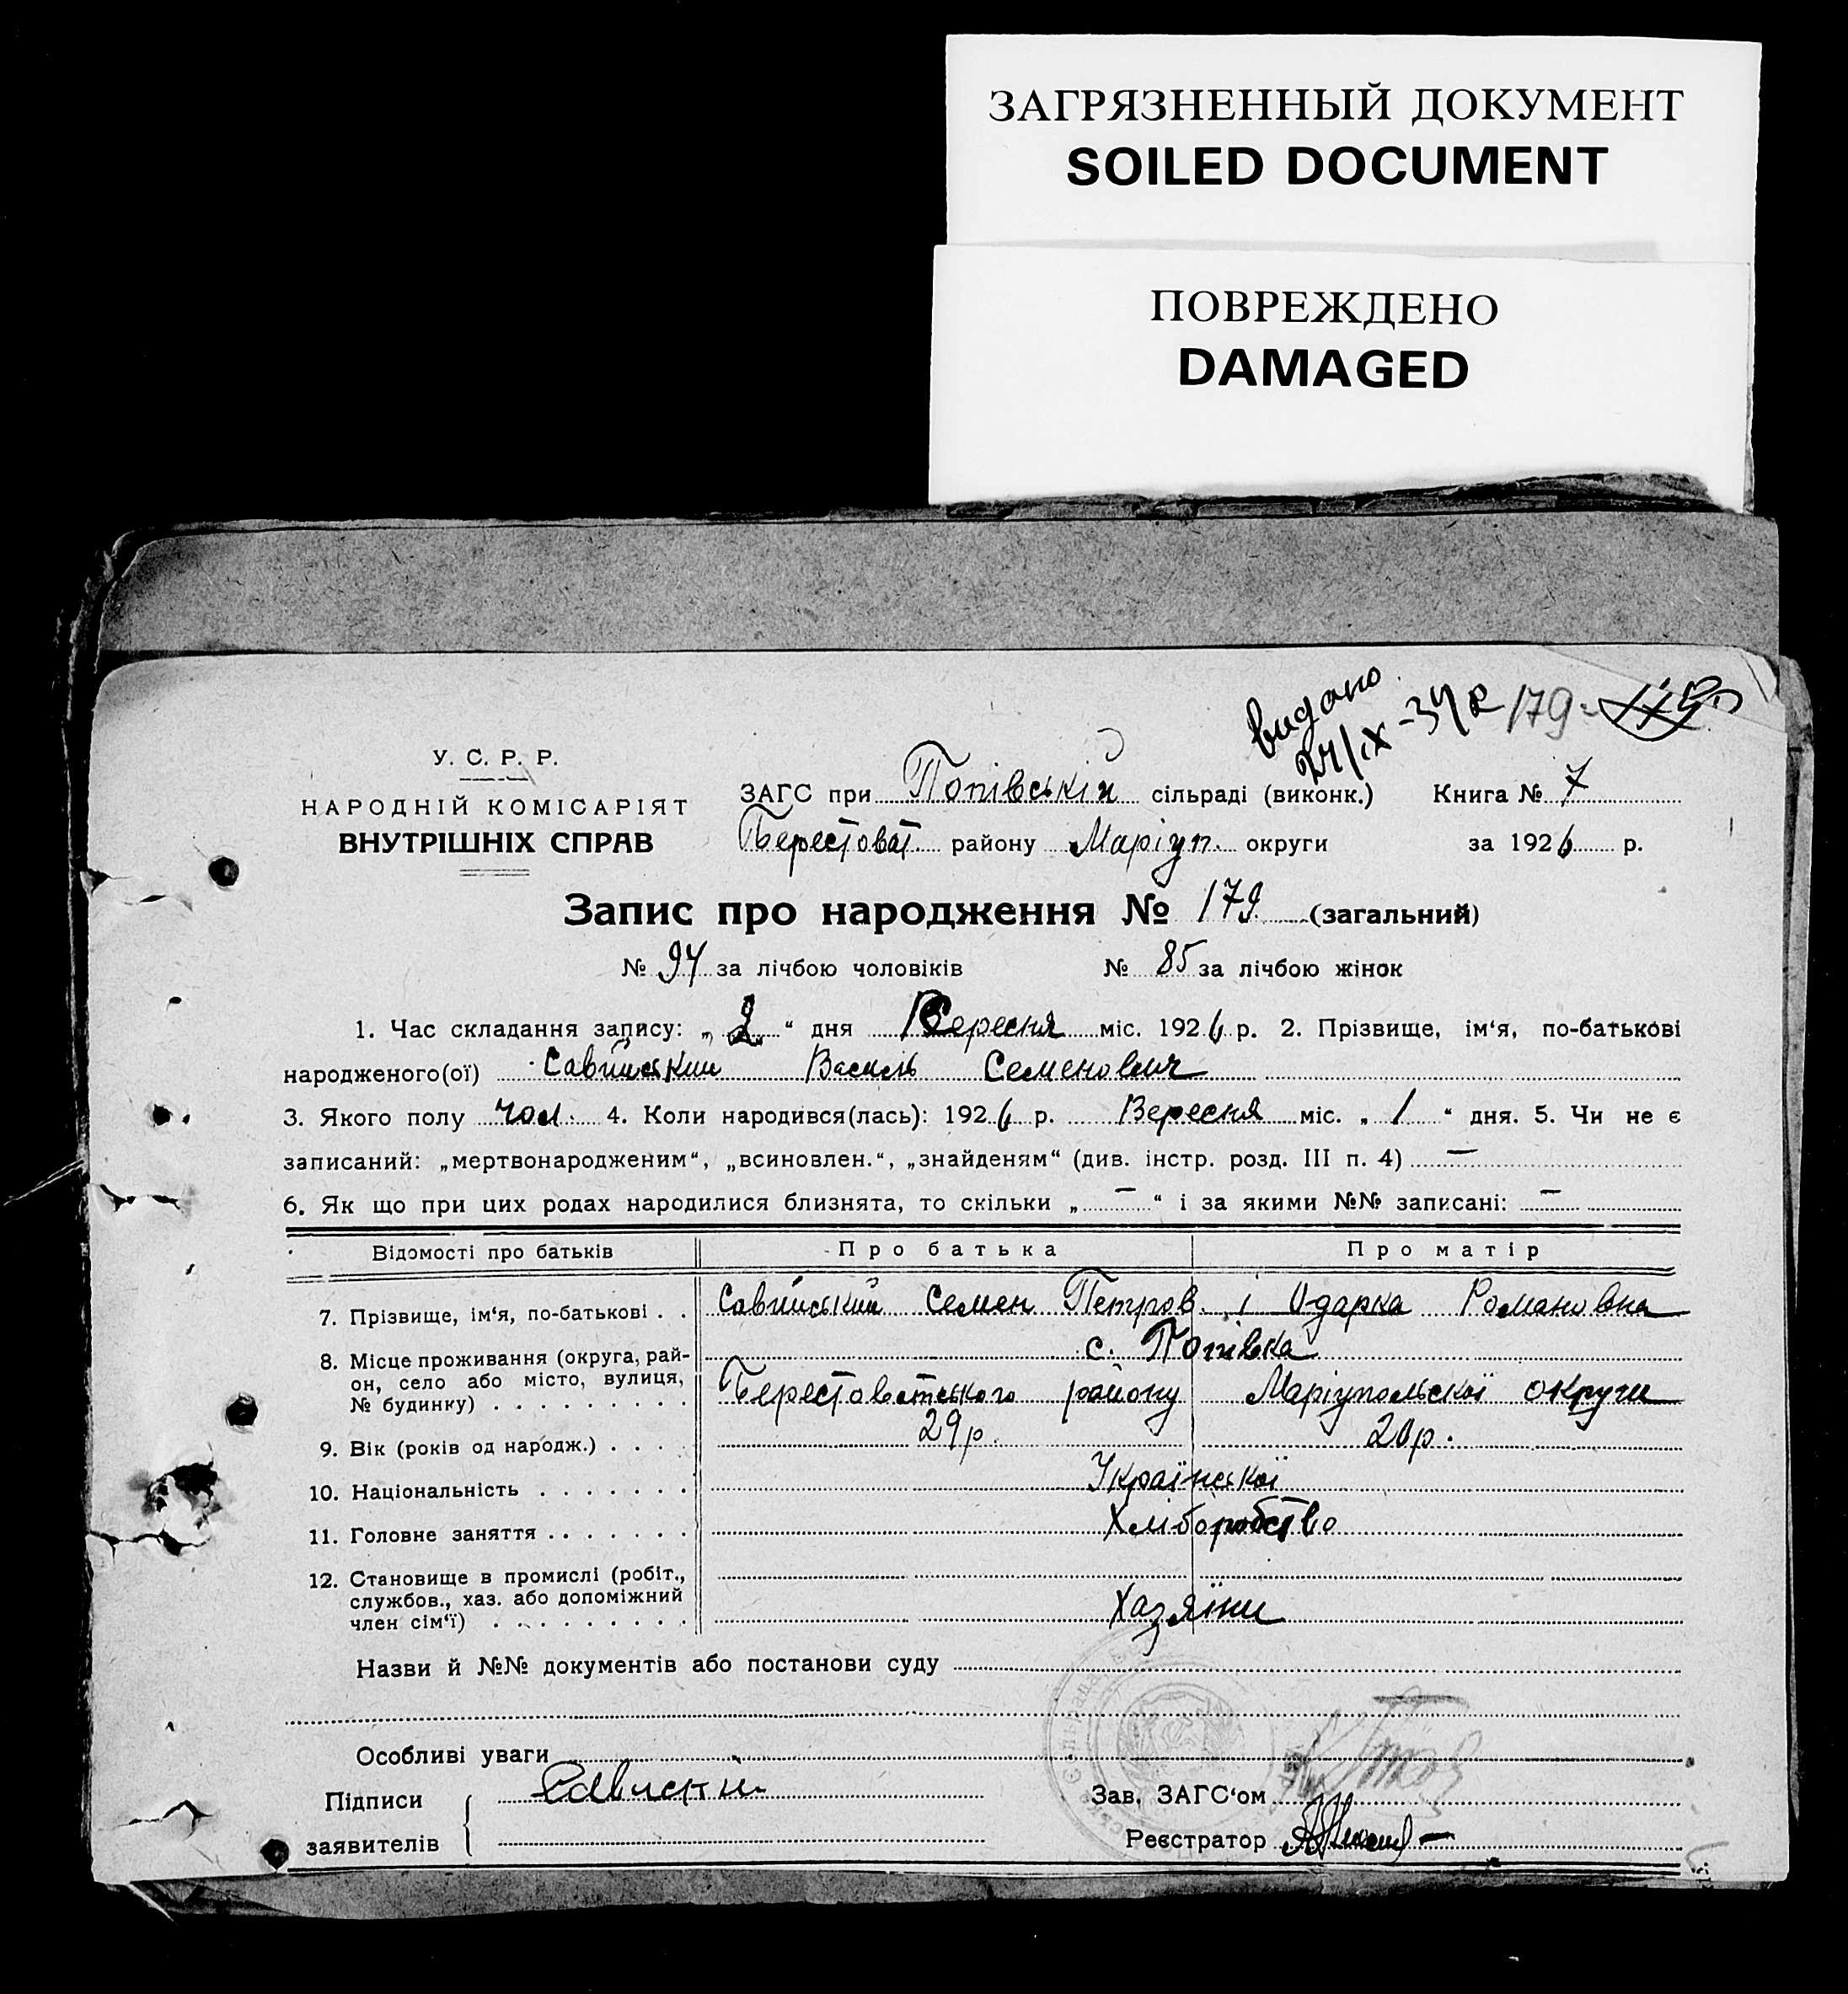 ЗАГРЯЗНЕННЫЙ ДОКУМЕНТ
SOILED DOCUMENT
ПОВРЕЖДЕНО
DAMAGED
видано
24/IX-34 р 179
У. С. Р. Р.
НАРОДНІЙ КОМІСАРІЯТ
ВНУТРІШНІХ СПРАВ
ЗАГС при Попівській сільраді (виконк.) Книга № 7
Берестоват. району Маріуп. округи за 1926 р.
Запис про народження № 179 (загальний)
№ 94 за лічбою чоловіків № 85 за лічбою жінок
1. Час складання запису: „2“ дня Вересня міс. 1926 р. 2. Прізвище, ім‘я, по-батькові
народженого(ої) Савлійський Василь Семенович
3. Якого полу чол. 4. Коли народився(лась): 1926 р. Вересня міс. „1“ дня. 5. Чи не є
записаний: „мертвонародженим“, „всиновлен.“, „знайденям“ (див. інстр. розд. III п. 4) —
6. Як що при цих родах народилися близнята, то скільки „—“ і за якими №№ записані: —
Відомості про батьків Про батька Про матір
7. Прізвище, ім‘я, по-батькові . . Семен Петров. і Одарка Романовна
8. Місце проживання (округа, рай- с. Попівка
он, село або місто, вулиця, Берестоватського району Маріупольскої округи
№ будинку) . . . . . . . . .
9. Вік (років од народж.) . . . . 29 р. 20 р.
10. Національність . . . . . . . Українскої
11. Головне заняття . . . . . . . Хліборобство
12. Становище в промислі (робіт.,
службов., хаз. або допоміжний
член сім‘ї) . . . . . . . . . Хазяїни
Назви й №№ документів або постанови суду
Особливі уваги
Підписи
заявителів
Зав. ЗАГС‘ом
Реєстратор